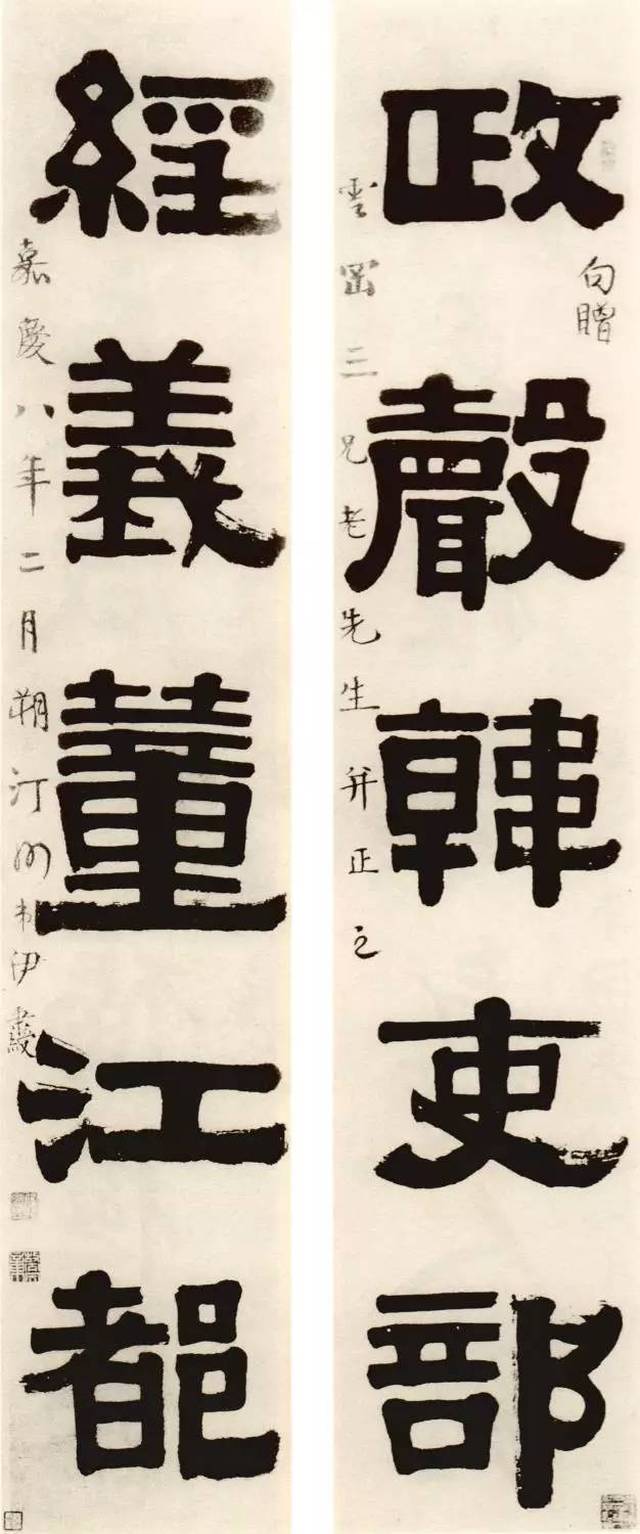 政聲韓吏部
句贈
雲嵒三兄老先生并正之
經義董江都
嘉慶八年二月朔汀州弟伊秉綬